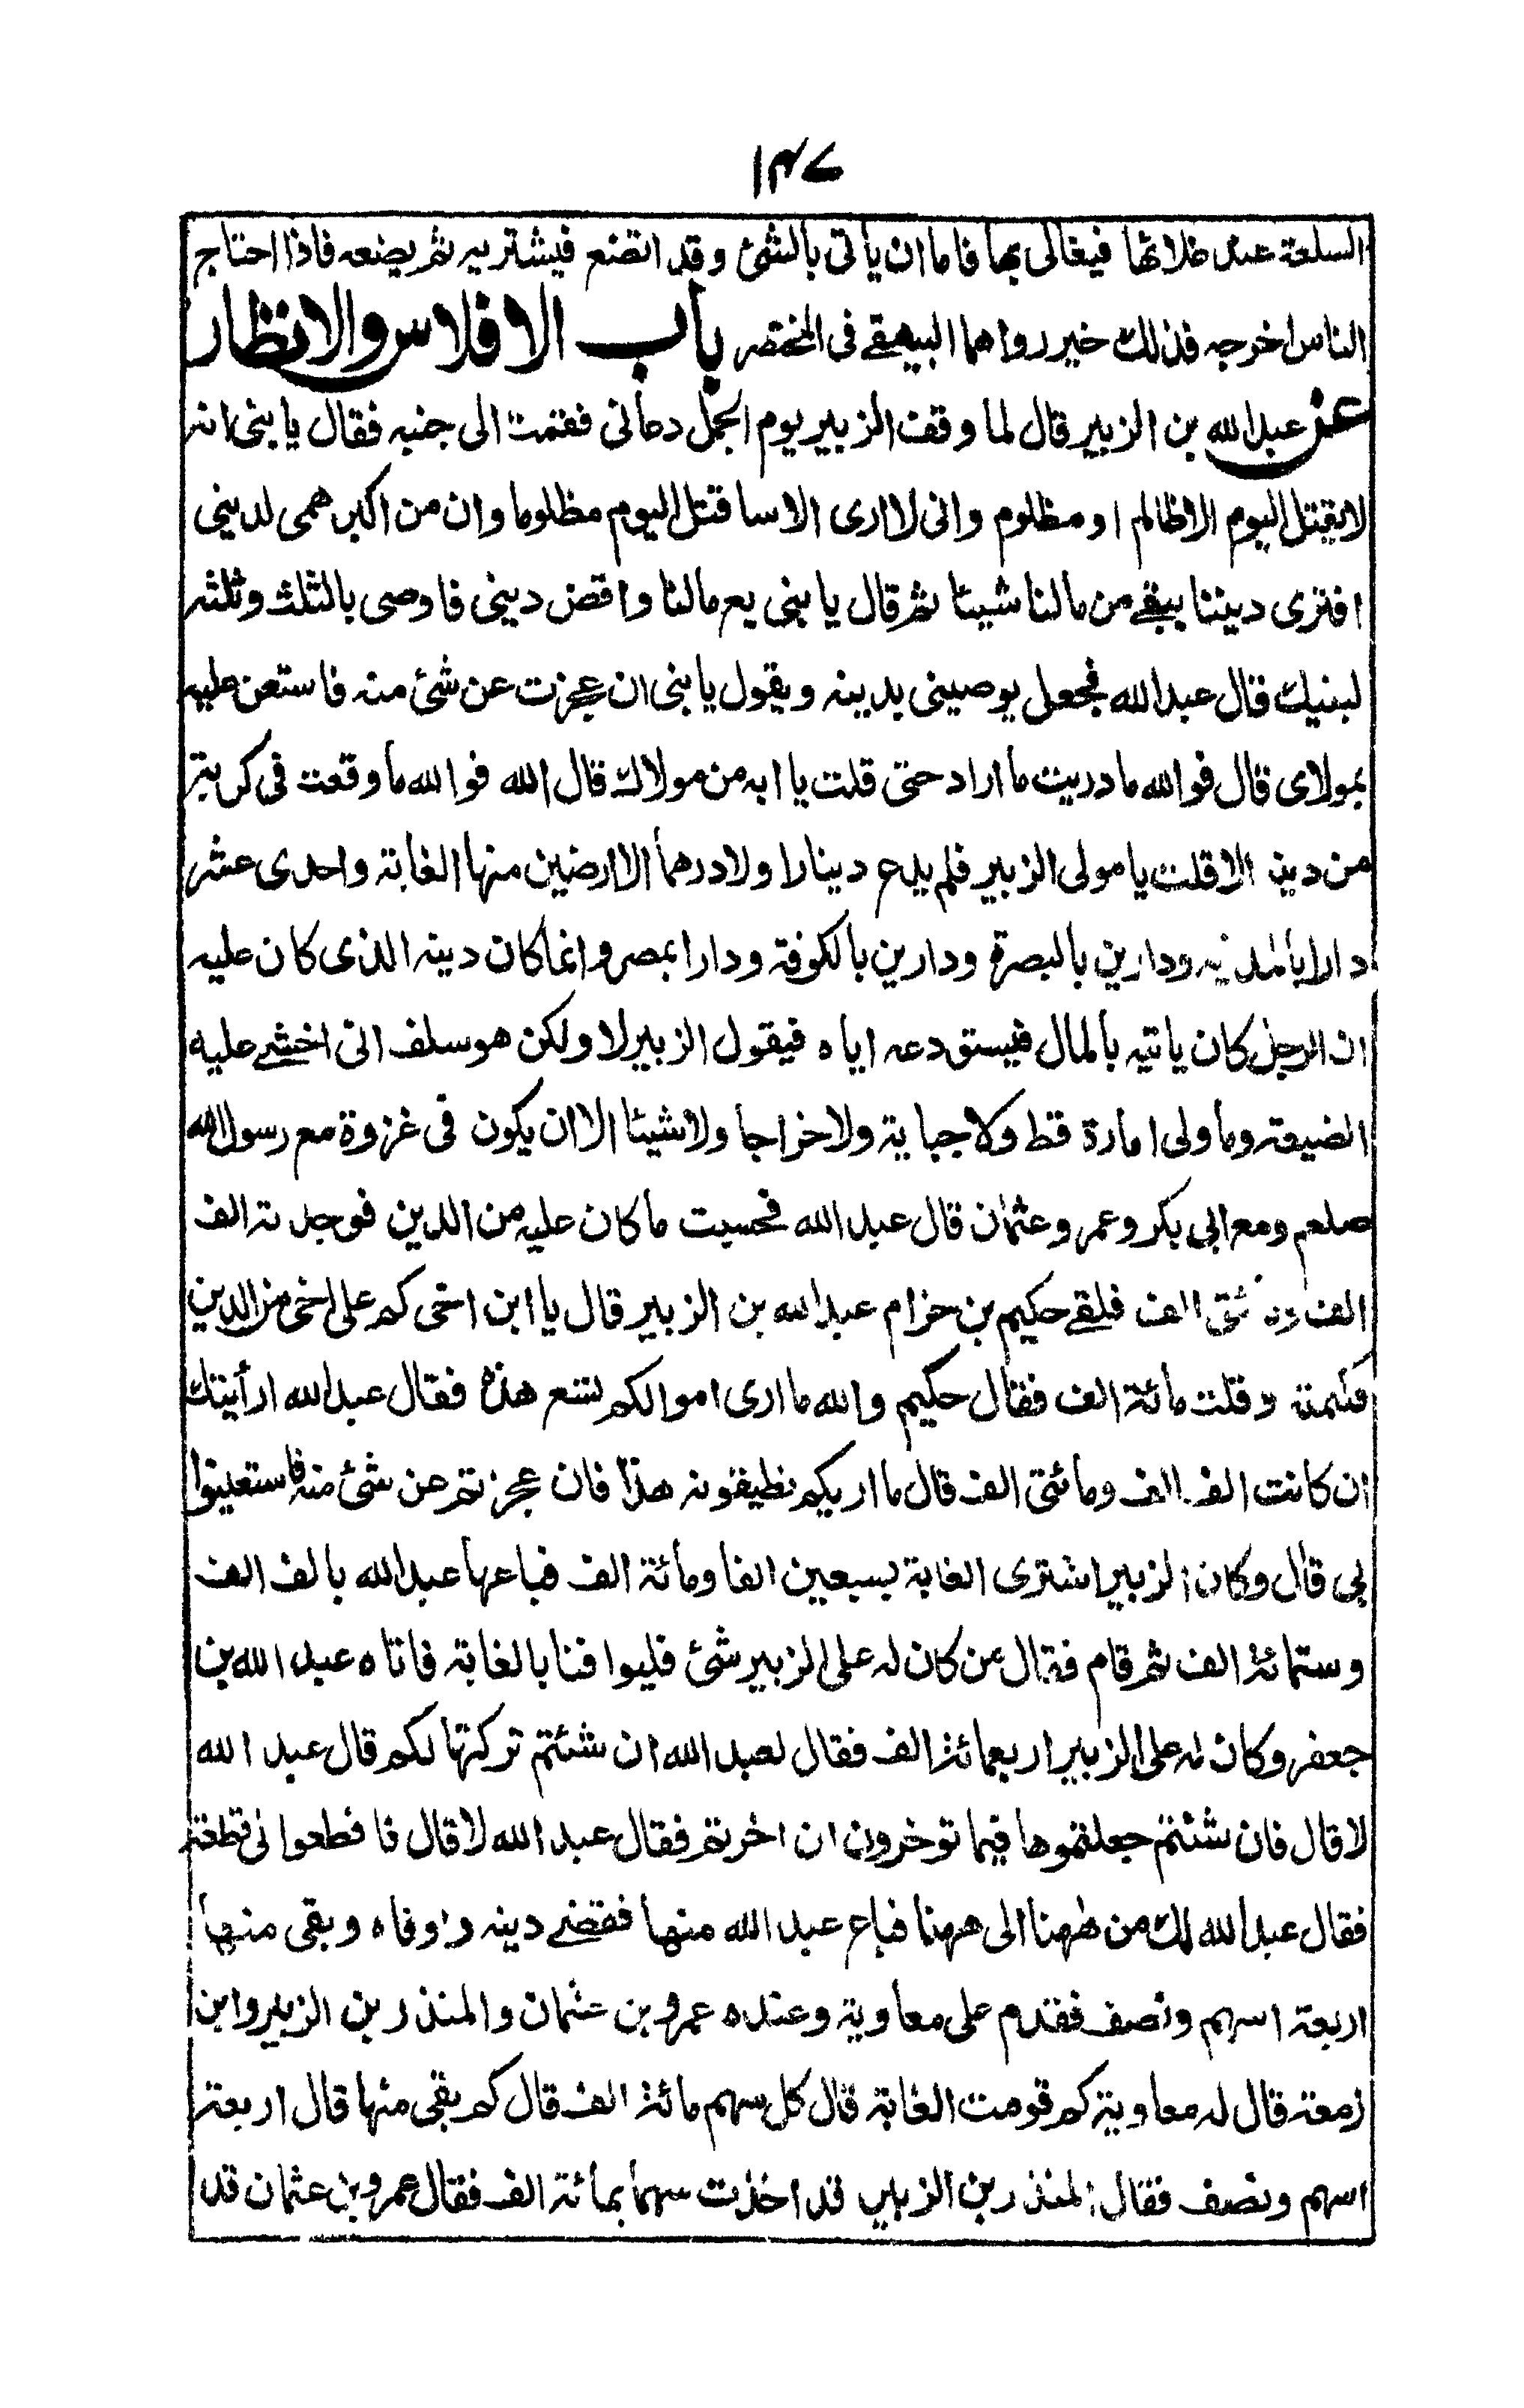 ١٤٧
السلعة عند غلائها فيغالى بها فاما ان ياتى بالشئ وقد اتضع فيشتريه ثم يضعه فاذا احتاج
الناس اخرجه فذلك خير رواهما البيهقے فى المختصر باب الافلاس والانظار
عن عبدالله بن الزبير قال لما وقف الزبير يوم الجمل دعانى فقمت الى جنبه فقال يا بنى انه
لا يقتل اليوم الا ظالم او مظلوم وانى لا ارى الا ساقتل اليوم مظلوما وان من اكبر همى لدينى
افترى ديننا يبقے من مالنا شيئا ثم قال يا بنى بع مالنا واقض دينى فاوصى بالثلث وثلثه
لبنيك قال عبدالله فجعل يوصينى بدينه ويقول يا بنى ان عجزت عن شئ منه فاستعن عليه
بمولاى قال فوالله ما دريت ما اراد حتى قلت يا ابه من مولاك قال الله فوالله ما وقعت فى كربة
من دينه الا قلت يا مولى الزبير فلم يدع دينارا ولا درهما الا ارضين منها الغابة واحدى عشر
دارا بالمدينه ودارين بالبصرة ودارين بالكوفة ودارا بمصر وانما كان دينه الذى كان عليه
ان الرجل كان ياتيه بالمال فيستودعه اياه فيقول الزبير لا ولكن هو سلف انى اخشے عليه
الضيعة وما ولى امارة قط ولا جباية ولا خراجا ولا شيئا الا ان يكون فى غزوة مع رسول الله
صلعم ومع ابى بكر وعمر وعثمان قال عبدالله فحسبت ما كان عليه من الدين فوجدته الف
الف ومائتى الف فلقے حكيم بن حزام عبدالله بن الزبير قال يا ابن اخى كم على اخى من الدين
فكتمته وقلت مائة الف فقال حكيم والله ما ارى اموالكم تسع هذه فقال عبدالله ارأيتك
ان كانت الف الف ومائتى الف قال ما اريكم تطيقونه هذا فان عجزتم عن شئ منه فاستعينوا
بى قال وكان الزبير اشترى الغابة بسبعين الفا ومائة الف فباعها عبدالله بالف الف
وستمائة الف ثم قام فقال من كان له على الزبير شئ فليوافنا بالغابة فاتاه عبد الله بن
جعفر وكان له على الزبير اربعمائة الف فقال لعبد الله ان شئتم تركتها لكم قال عبد الله
لا قال فان شئتم جعلتموها فيما توخرون ان اخرتم فقال عبد الله لا قال فاقطعوا لى قطعة
فقال عبدالله لك من ههنا الى ههنا فباع عبد الله منها فقضے دينه واوفاه وبقى منها
اربعة اسهم ونصف فقدم على معاوية وعنده عمرو بن عثمان والمنذر بن الزبير وابن
زمعة قال له معاوية كم قومت الغابة قال كل سهم مائة الف قال كم بقى منها قال اربعة
اسهم ونصف فقال المنذر بن الزبير قد اخذت سهما بمائة الف فقال عمرو بن عثمان قد